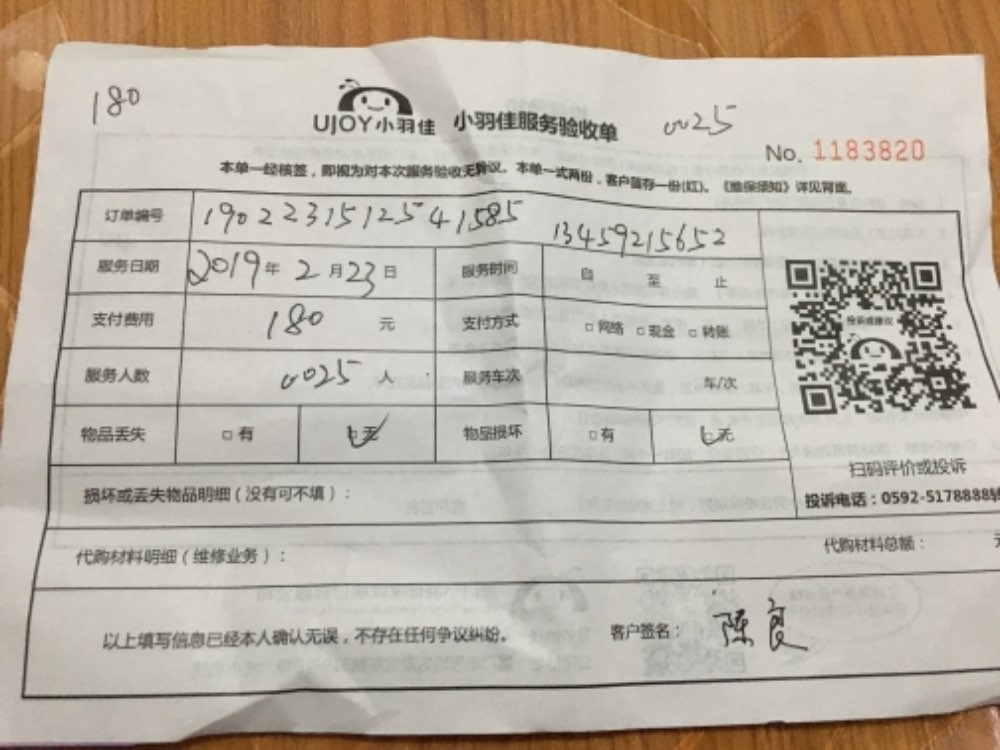 180
UJOY小羽佳 小羽佳服务验收单 0025
No. 1183820
本单一经核签，即视为对本次服务验收无异议。本单一式两份，客户留存一份(红)。《维保须知》详见背面。
订单编号 190223151254 1585 13459215652
服务日期 2019年 2月23日 服务时间 自 至 止
支付费用 180 元 支付方式 □网络 □现金 □转账
服务人数 0025 人 服务车次 车/次
物品丢失 □有 ☑无 物品损坏 □有 ☑无
投诉或建议
扫码评价或投诉
投诉电话：0592-5178888转
损坏或丢失物品明细（没有可不填）：
代购材料明细（维修业务）： 代购材料总额： 元
以上填写信息已经本人确认无误，不存在任何争议纠纷。 客户签名： 陈良